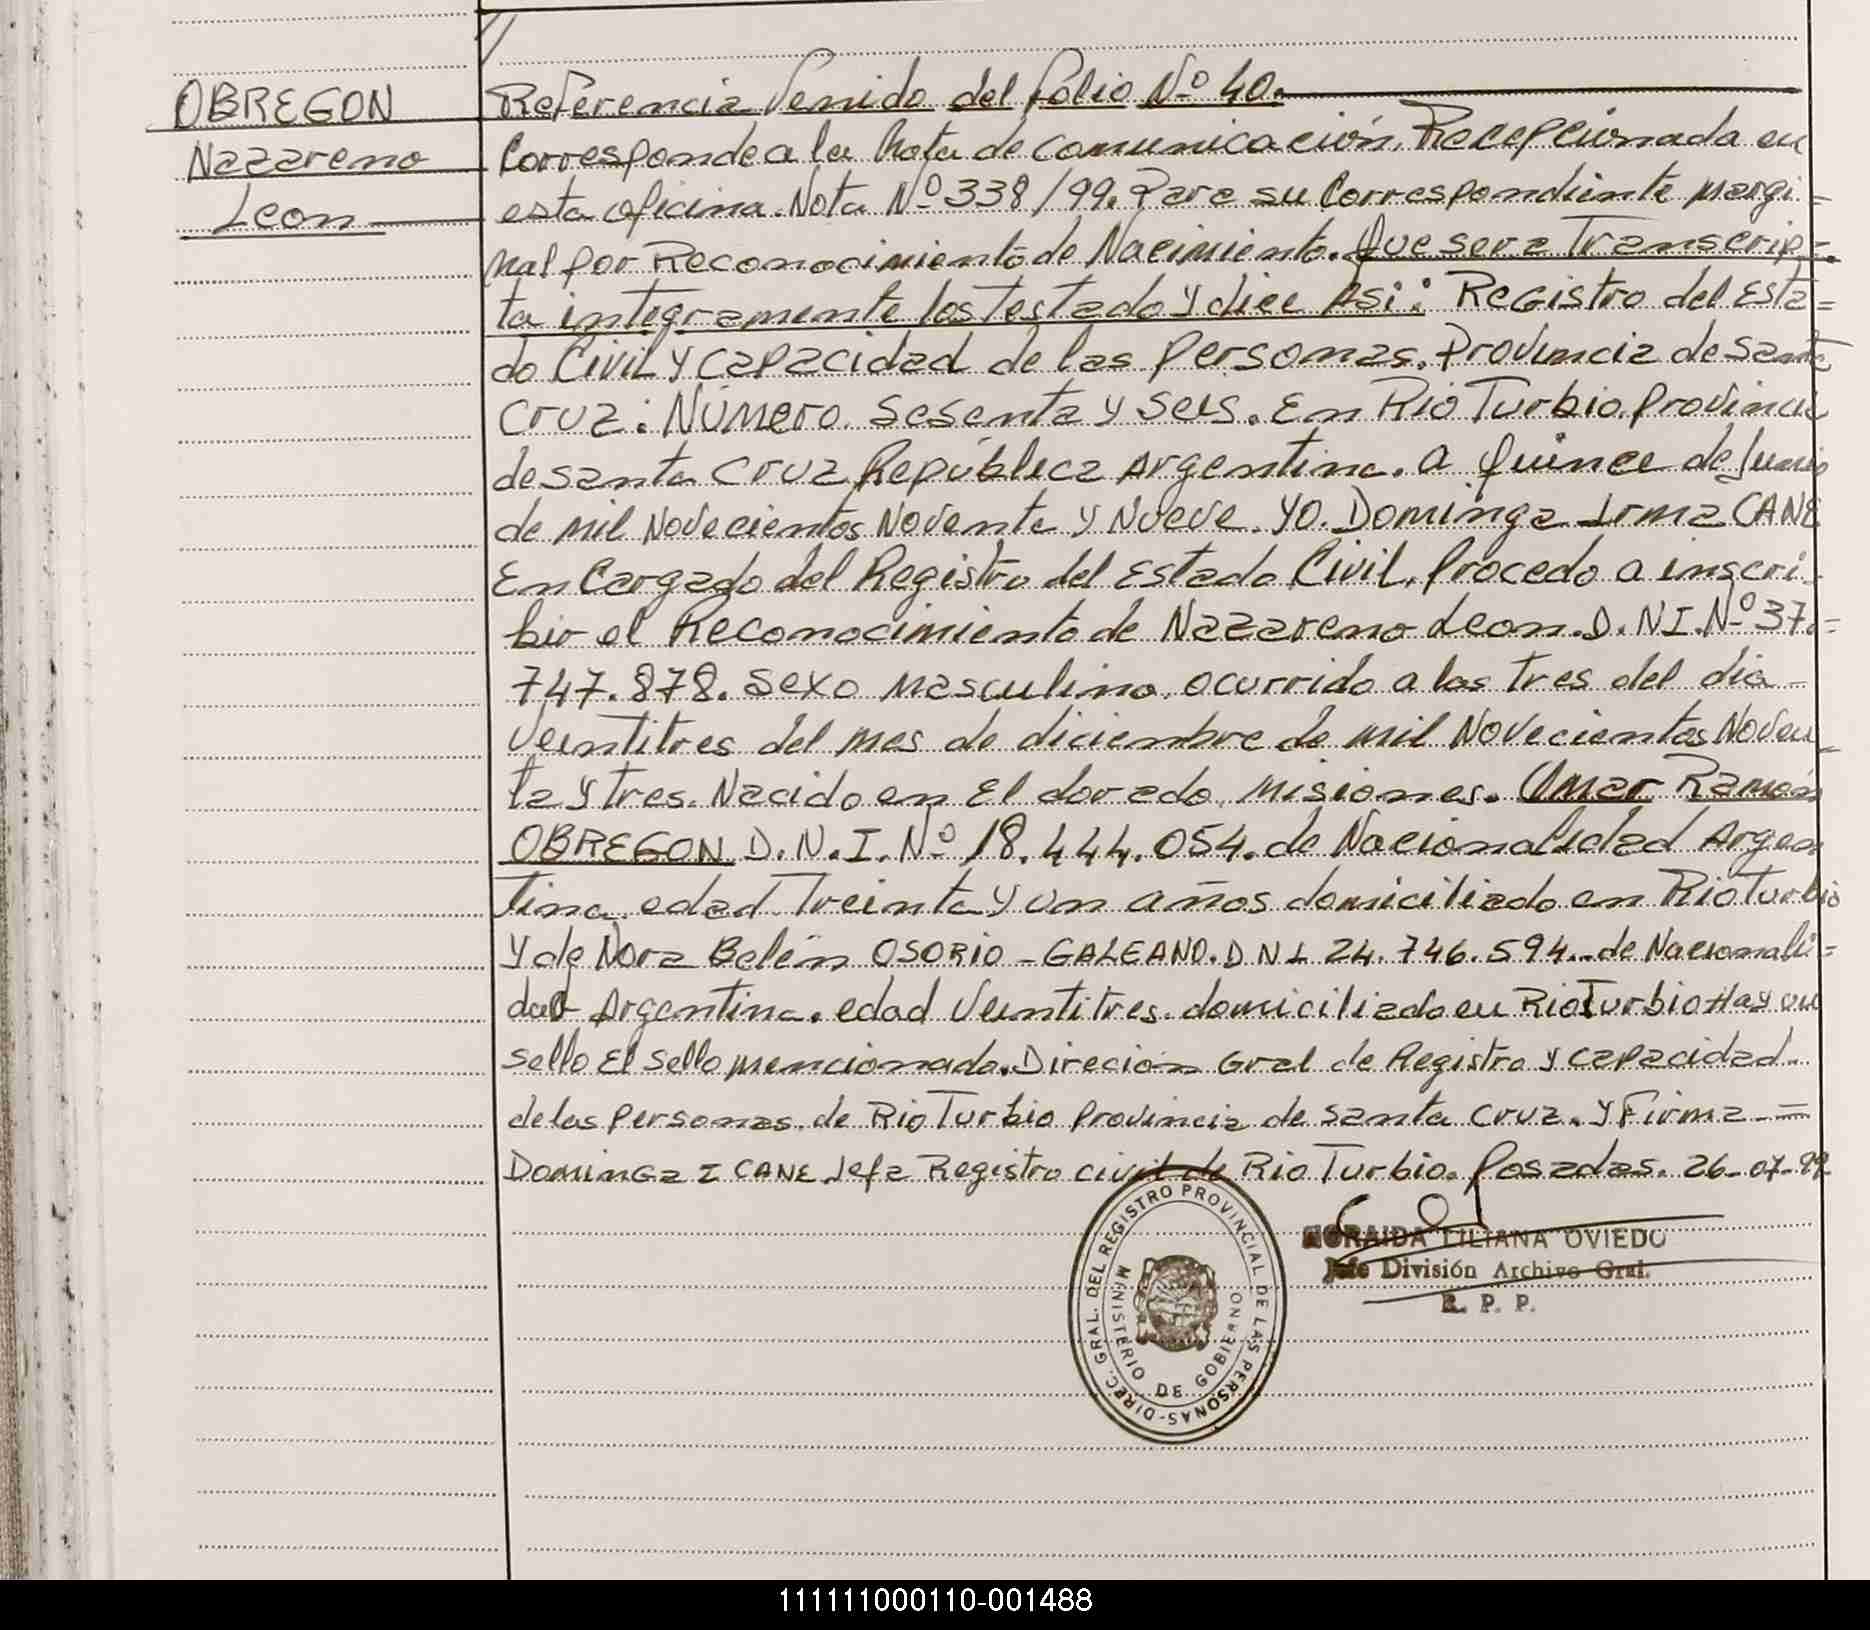 OBREGON
Nazareno
Leon
Referencia Venido del folio Nº 40.
Corresponde a la Nota de comunicación. Recepcionada en
esta oficina. Nota Nº 338/99. Para su Correspondiente margi=
nal por Reconocimiento de Nacimiento. Que sera Transcrip=
ta integramente los Testado y dice Asi: Registro del Esta=
do Civil y Capacidad de las Personas. Provincia de Santa
Cruz: Número. Sesenta y Seis. En Rio Turbio. Provincia
de Santa Cruz República Argentina. a Quince de Junio
de mil Novecientos Noventa y Nueve. Yo. Dominga Irma CANE
En Cargado del Registro del Estado Civil. Procedo a inscri-
bir el Reconocimiento de Nazareno Leon. D.NI.Nº 37.=
747.878. Sexo Masculino. ocurrido a las Tres del dia-
Veintitres del mes de diciembre de mil Novecientos Noven-
ta y tres. Nacido en El dorado. Misiones. Omar Ramón
OBREGON D.N.I.Nº 18.444.054. de Nacionalidad Argen
tina. edad. Treinta y un años domiciliado en Rio Turbio
y de Nora Belén OSORIO - GALEANO. D N I 24.746.594.. de Nacionali=
dad Argentina. edad Veintitres. domiciliado en Rio Turbio Hay un
sello El sello mencionado. Direción Gral de Registro y Capacidad..
de las Personas. de Rio Turbio Provincia de Santa Cruz. y Firma =
Dominga I CANE Jefa Registro civil de Rio Turbio. Posadas. 26-07-99
ZORAIDA LILIANA OVIEDO
Jefe División Archivo Gral.
R. P. P.
DIREC. GRAL. DEL REGISTRO PROVINCIAL DE LAS PERSONAS-
MINISTERIO DE GOBIERNO
111111000110-001488